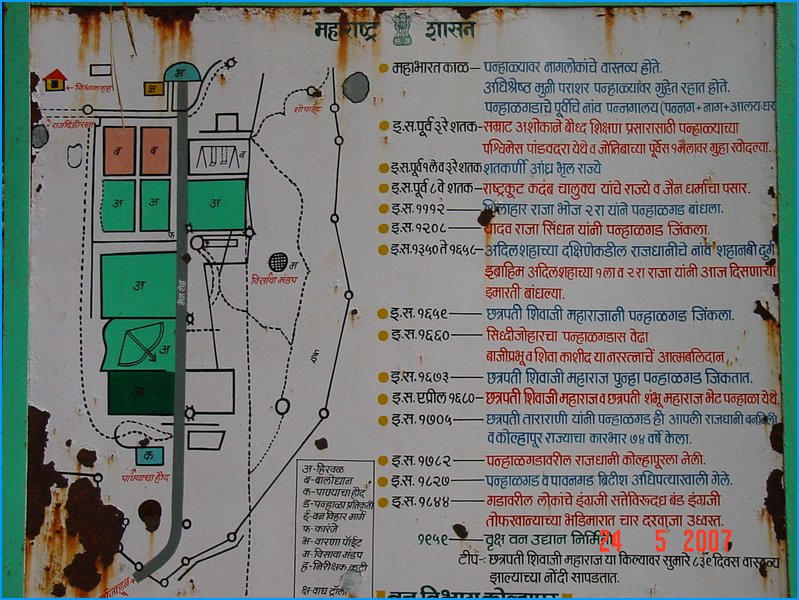 महाराष्ट्र शासन
महाभारत काळ - पन्हाळ्यावर नागलोकांचे वास्तव्य होते.
अधिश्रेष्ठ मुनी पराशर पन्हाळ्यांवर गुहेत रहात होते.
पन्हाळगडाचे पूर्वीचे नांव पन्नगालय (पन्नग+नाग+आलय-घर
इ.स.पूर्व ३ रे शतक- सम्राट अशोकाने बौध्द शिक्षण प्रसारासाठी पन्हाळ्याच्या
पश्चिमेस पांडवदरा येथे व जोतिबाच्या पूर्वेस १ मैलावर गुहा खोदल्या.
इ.स.पूर्व १ले व ३रे शतक शतकर्णी आंध्र भृत्य राज्ये
इ.स.पूर्व ८ वे शतक- राष्ट्रकूट कदंब चालुक्य यांचे राज्ये व जैन धर्माचा पसार.
इ.स. १११२ शिलाहार राजा भोज २ रा यांने पन्हाळगड बांधला.
इ.स. १२०८ यादव राजा सिंधन यांनी पन्हाळगड जिंकला.
इ.स. १३५० ते १६५८- आदिलशहाच्या दक्षिणेकडील राजधानीचे नांव शहानबी दुर्ग
इब्राहिम अदिलशहाच्या १ला व २ रा राजा यांनी आज दिसणाऱ्या
इमारती बांधल्या.
इ.स. १६५९ छत्रपती शिवाजी महाराजानी पन्हाळगड जिंकला.
इ.स. १६६० सिध्दीजोहारचा पन्हाळगडास वेढा
बाजीप्रभू व शिवा काशीद या नररत्नाचें आत्मबलिदान.
इ.स. १६७३ छत्रपती शिवाजी महाराज पुन्हा पन्हाळगड जिकतात.
इ.स. एप्रील १६८० छत्रपती शिवाजी महाराज व छत्रपती शंभू महाराज भेट पन्हाळा येथे.
इ.स. १७०५ छत्रपती ताराराणी यांनी पन्हाळगड ही आपली राजधानी बनविली
व कोल्हापूर राज्याचा कारभार ७४ वर्षे केला.
इ.स. १७८२ पन्हाळगडावरील राजधानी कोल्हापूरला नेली.
इ.स. १८२७ पन्हाळगड व पावनगड ब्रिटीश अधिपत्याखाली गेले.
इ.स. १८४४ गडावरील लोकांचे इंग्रजी सत्तेविरुध्द बंड इंग्रजी
तोफखान्याच्या भडिमारात चार दरवाजा उध्वस्त.
१९५९ वृक्ष वन उद्यान निर्मिती
टीप- छत्रपती शिवाजी महाराज या किल्यावर सुमारे ८३९ दिवस वास्तव्य
झाल्याच्या नोंदी सापडतात.
वन विभाग कोल्हापूर
24 5 2007
विश्रामगृह
भ
क्ष
शो पाईंट
राजदिंडी रस्ता
ब
ब
ब
अ
अ
अ
फ
म
विसावा मंडप
अ
मेन रोड
अ
अ
क
पाण्याचा हौद
अ-हिरवळ
ब-बालोद्यान
क-पाण्याचा हौद
ड-पन्हाळा प्रतिकृती
ई-वन विहार मार्ग
फ-कारंजे
भ-वारणा पॉईंट
म-विसावा मंडप
ह-निरीक्षक कुटी
क्ष-वाघ ट्रॉली